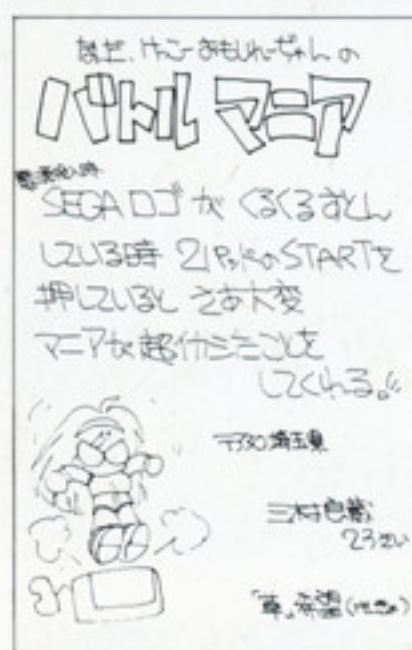 なだ、けっこーおもしれーじゃんの
バトル マニア
SEGAロゴが くるくるすとん
している時 2PパッドのSTARTを
押していると さあ大変
マニアが超イカシたことを
してくれる。!!
〒330 埼玉県
23さい